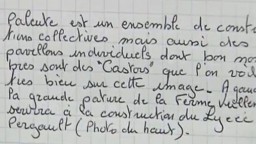 Palente est un ensemble de const
tions collectives mais aussi des
pavillons individuels dont bon nom
bres sont des "Castors" que l'on voit
très bien sur cette image. A gauc
la grande pature de la Ferme
servira à la construction du Lycée
Pergault (Photo du haut).